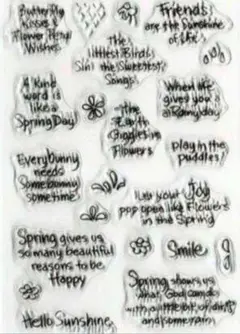 Butterfly
Kisses &
Flower Petal
Wishes
Friends
are the Sunshine
of Life
The
littlest Birds
Sing the Sweetest
Songs
A Kind
word is
like a
Spring Day
When life
gives you
a rainy day
play in the
puddles!
The
Earth
Giggles in
Flowers
Every bunny
needs
Some bunny
sometime
Let your Joy
pop open like Flowers
in the Spring
Spring gives us
so many beautiful
reasons to be
Happy
Smile
Spring shows us
what God can do
with a little bit of dirt
and some rain
Hello Sunshine